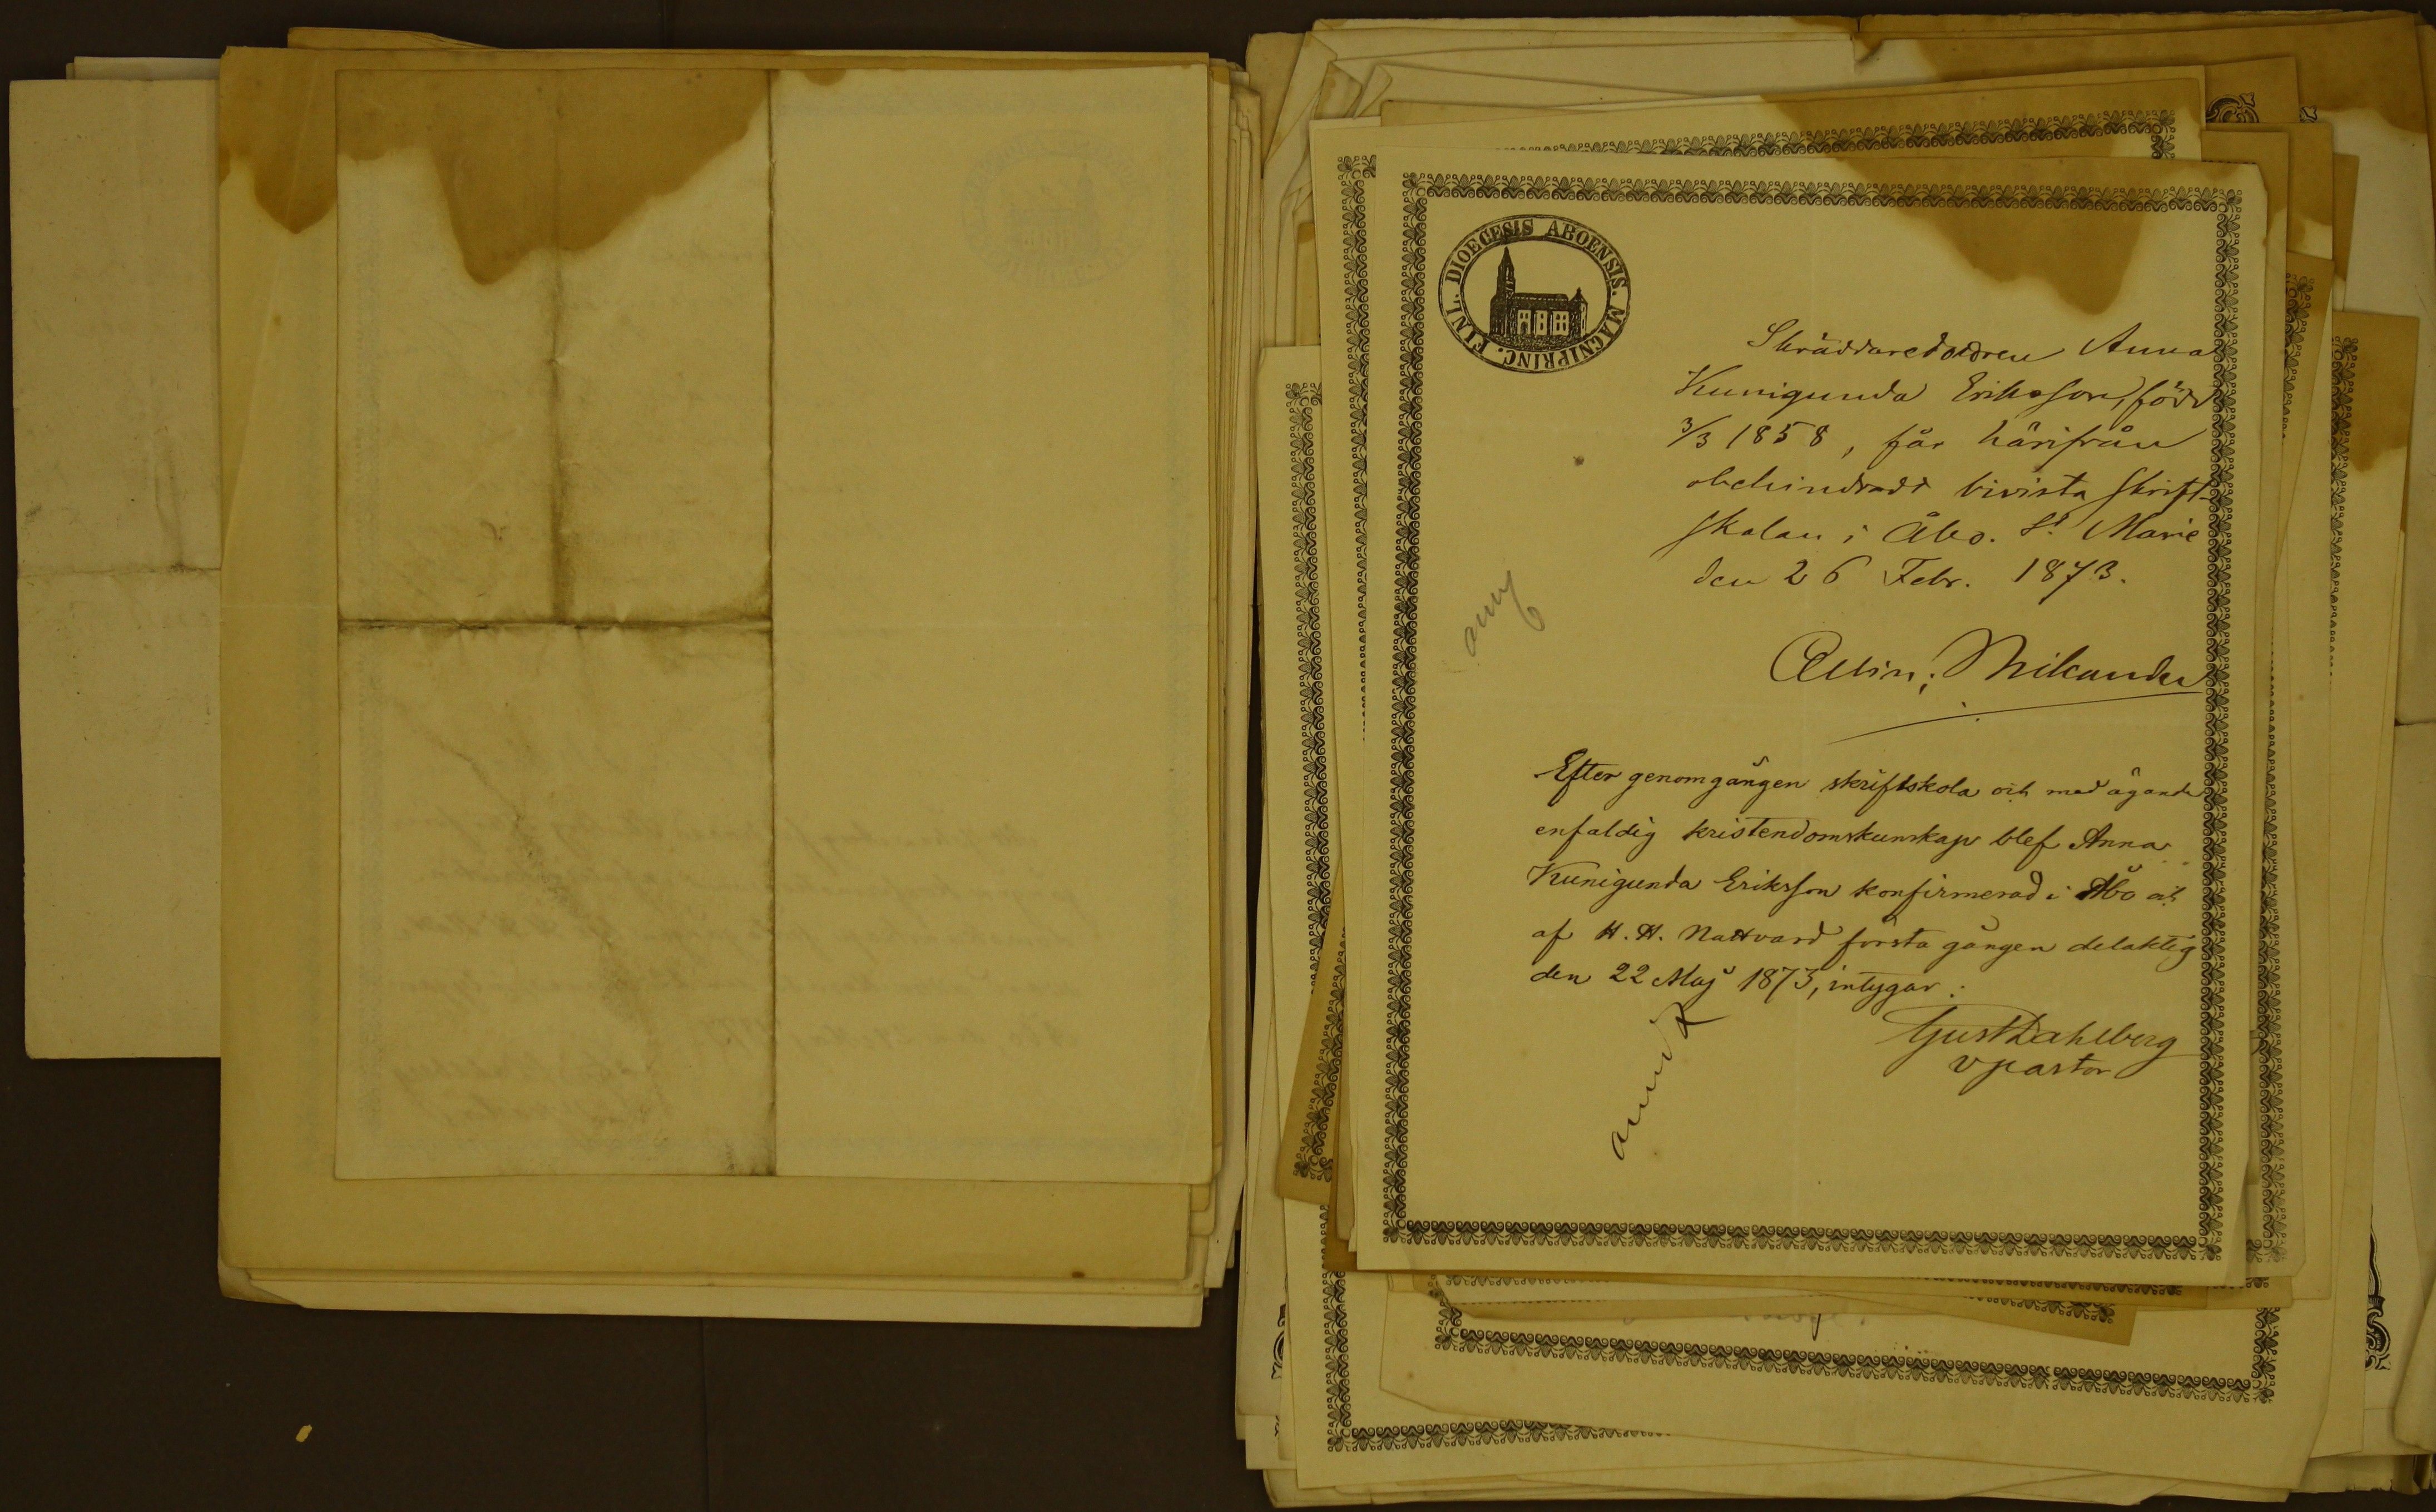 DIOECESIS ABOENSIS. MAGNIPRINC. FINL.
Skräddaredottren Anna
Kunigunda Eriksson, född
3/3 1858, får härifrån
obehindradt bivista skrift-
skolan i Åbo. St Marie
den 26 Febr. 1873.
Mikander
Efter genomgången skriftskola och med ägande
enfaldig kristendomskunskap blef Anna
Kunigunda Eriksson konfirmerad i Åbo och
af H. H. Nattvard första gången delaktig
den 22 Maj 1873, intygar:
Gust Dahlberg
v pastor